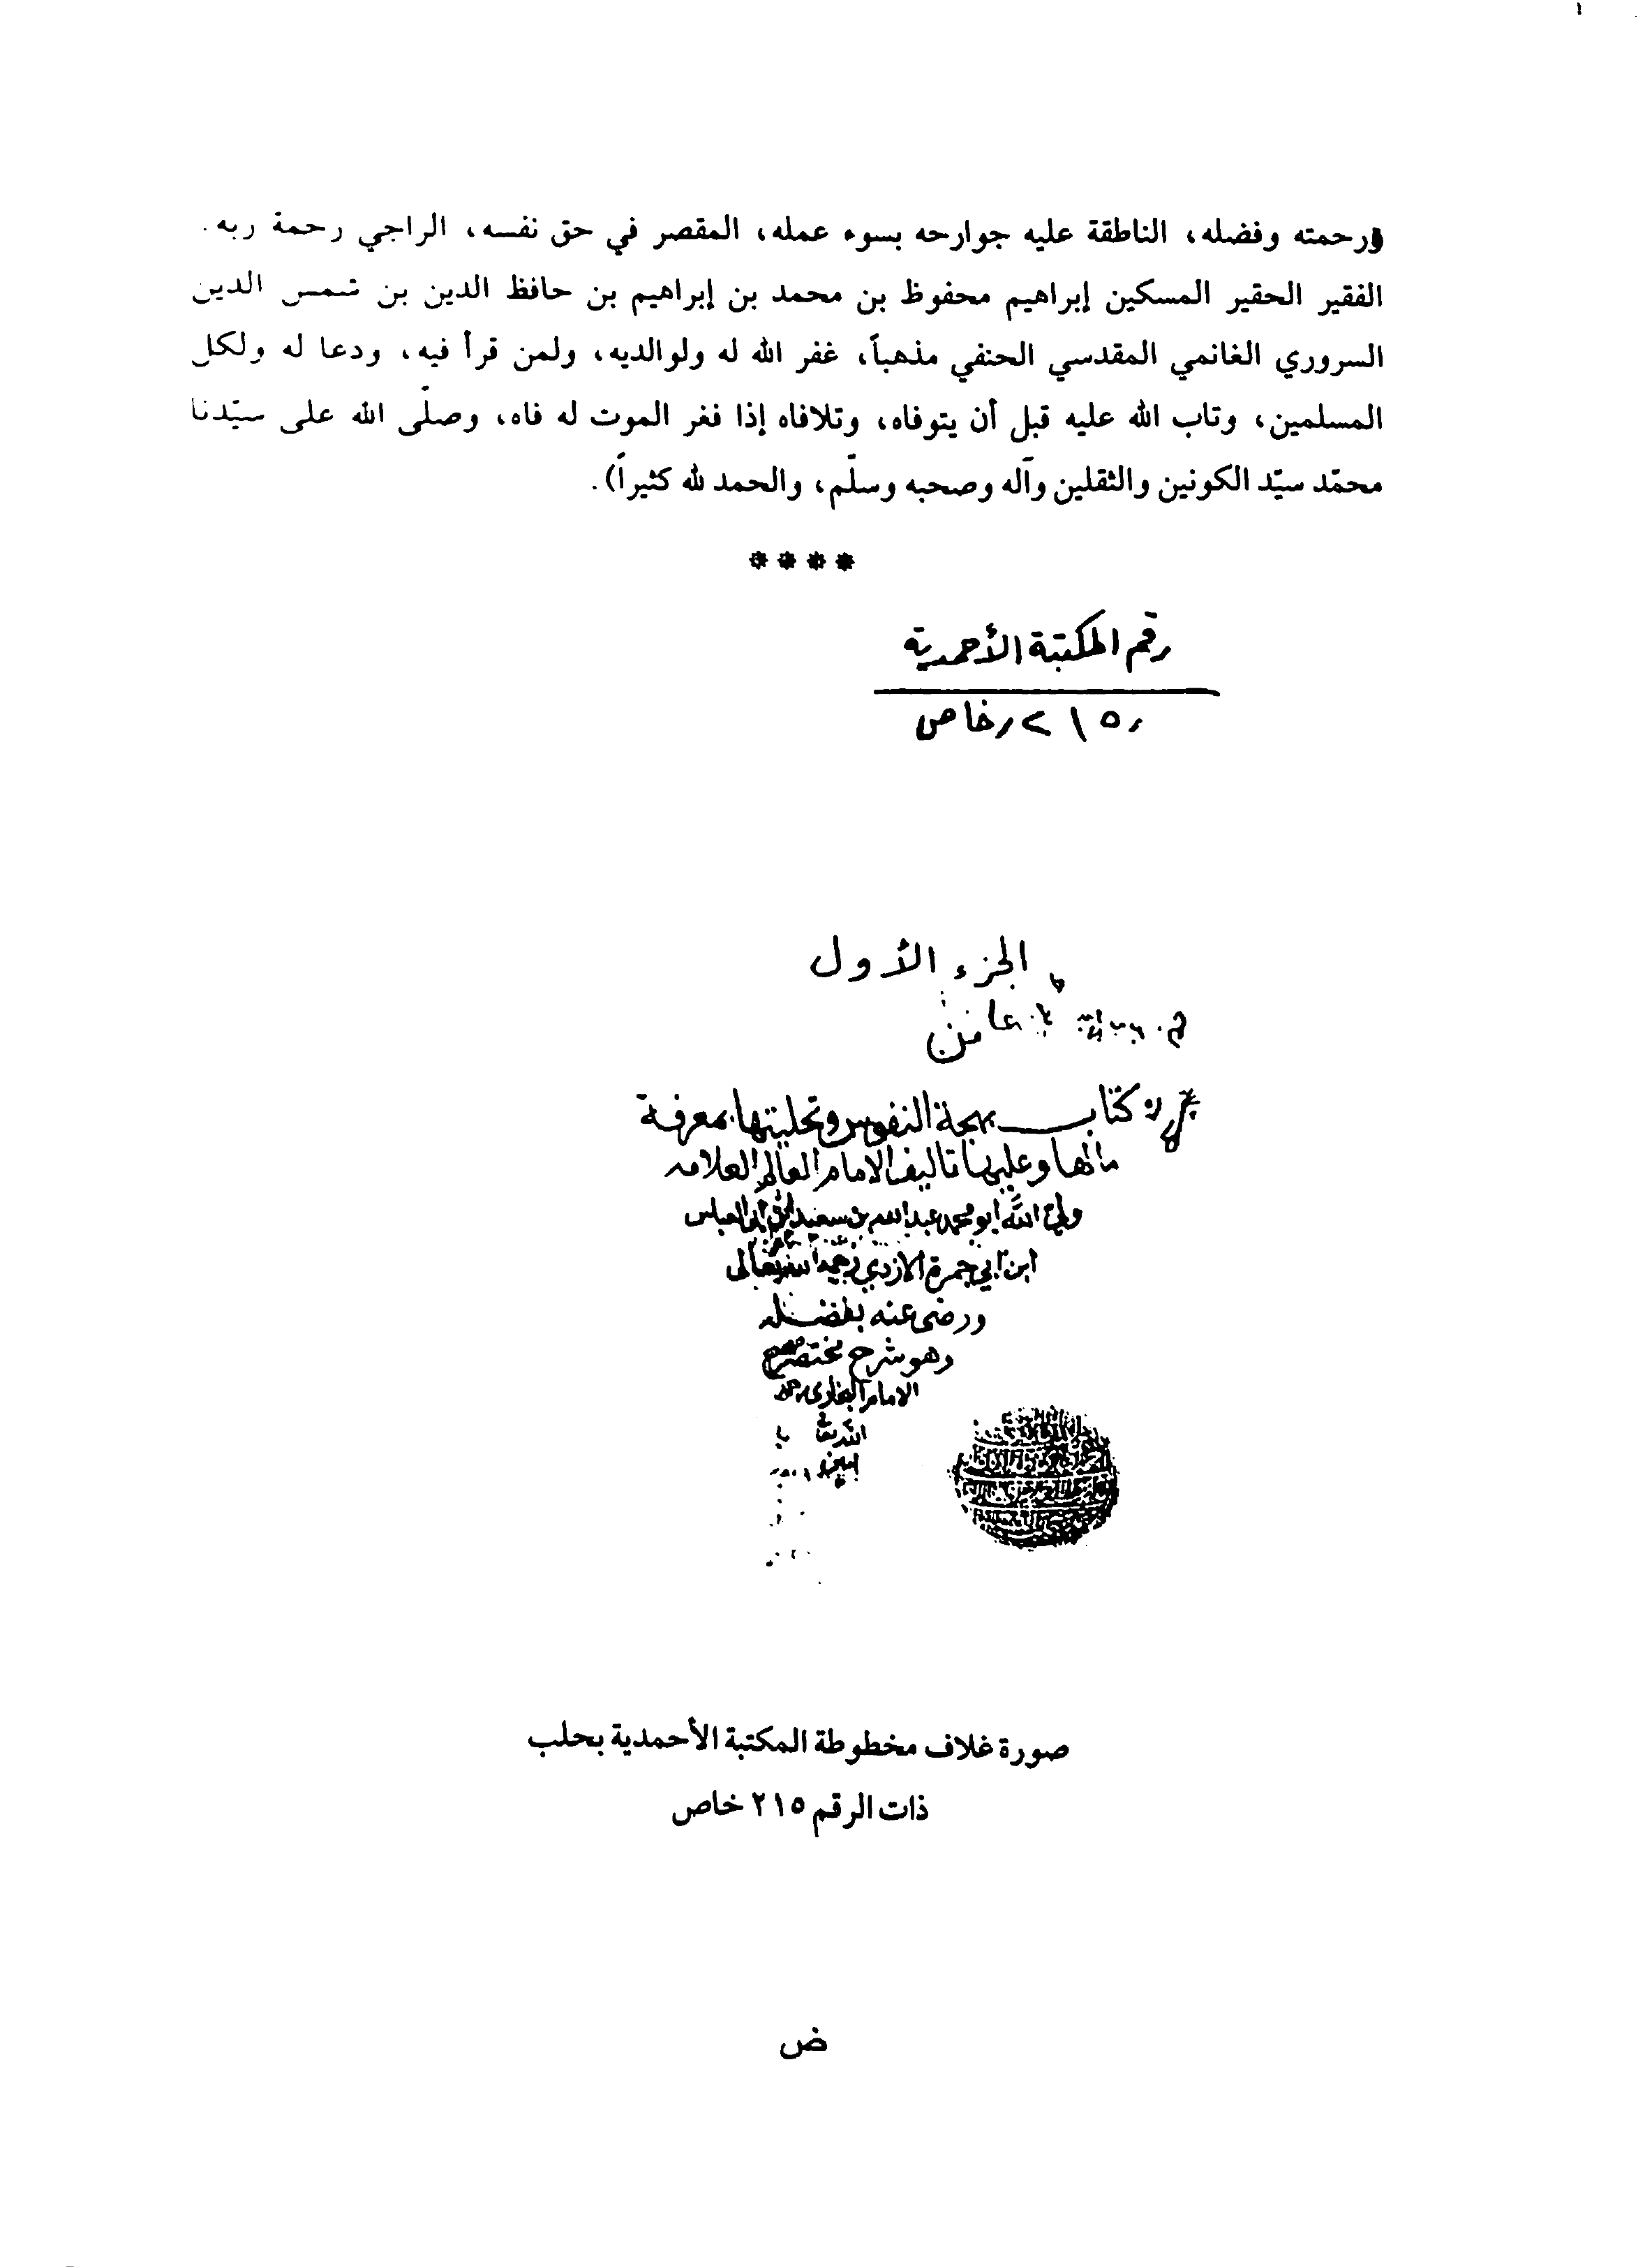 ورحمته وفضله، الناطقة عليه جوارحه بسوء عمله، المقصر في حق نفسه، الراجي رحمة ربه.
الفقير الحقير المسكين إبراهيم محفوظ بن محمد بن إبراهيم بن حافظ الدين بن شمس الدين
السروري الغانمي المقدسي الحنفي مذهباً، غفر الله له ولوالديه، ولمن قرأ فيه، ودعا له ولكل
المسلمين، وتاب الله عليه قبل أن يتوفاه، وتلافاه إذا فغر الموت له فاه، وصلّى الله على سيّدنا
محمّد سيّد الكونين والثقلين وآله وصحبه وسلّم، والحمد لله كثيراً).
****
رقم المكتبة الأحمدية
٢١٥ر خاص
الجزء الأول
من
كتاب بهجة النفوس وتحليتها بمعرفة
مالها وعليها تاليف الامام العالم العلامه
ولي الله ابو محمد عبد الله بن سعيد ابن ابي العباس
ابن ابي جمرة الازدي رحمه الله تعالى
ورضى عنه بفضله
وهو شرح مختصر
الامام البخاري رحمه
الله تعالى
امين
صورة غلاف مخطوطة المكتبة الأحمدية بحلب
ذات الرقم ٢١٥ خاص
ض